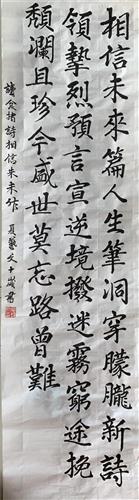 相信未來篇人生筆洞穿朦朧新詩
領摯烈預言宣逆境撥迷霧窮途挽
頹瀾且珍今盛世莫忘路曾難
讀食指詩相信未来作 夏